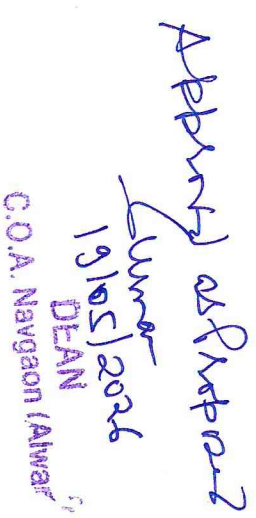 Approved as Proposed
19/05/2026
DEAN
C.O.A. Navgaon (Alwar)